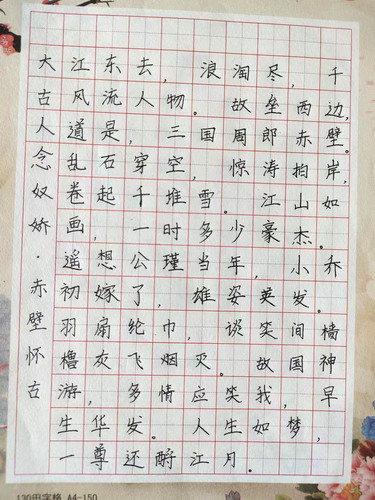 念奴娇·赤壁怀古
大江东去,浪淘尽,千
古风流人物。故垒西边,
人道是,三国周郎赤壁。
乱石穿空,惊涛拍岸,
卷起千堆雪。江山如
画,一时多少豪杰。
遥想公瑾当年,小乔
初嫁了,雄姿英发。
羽扇纶巾,谈笑间樯
橹灰飞烟灭。故国神
游,多情应笑我,早
生华发。人生如梦,
一尊还酹江月。
130田字格 A4-150